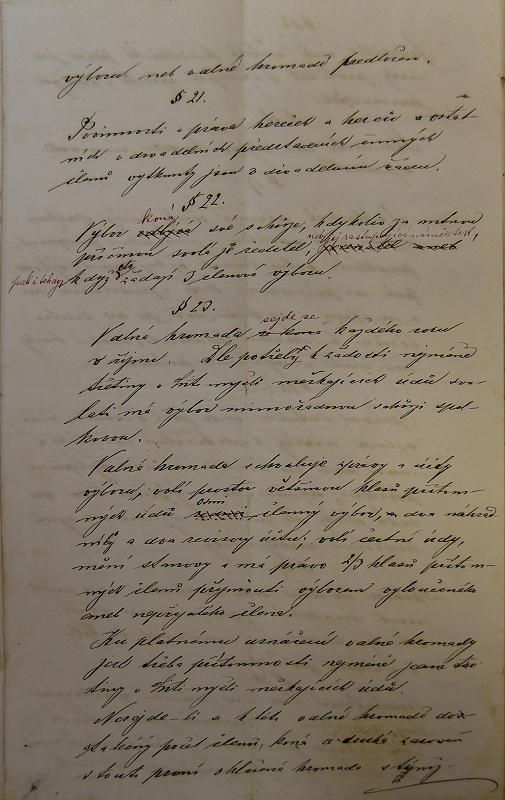 výboru neb valné hromadě předložen.
§ 21.
Povinnosti a práva hereček a herců a ostat-
ních v divadelních představeních činných
členů vytknuty jsou v divadelním řádu.
§ 22.
koná
Výbor odbývá své schůze, kdykoliv za nutnou
neb jej zastupující náměstek,
příčinou svolá je ředitel,
pak i tehdy, když to žádají 3 členové výboru.
§ 23.
sejde se
Valná hromada se koná každého roku
v říjnu. Dle potřeby k žádosti nejméně
třetiny v Litomyšli meškajících údů svo-
lati má výbor mimořádnou schůzi spol-
kovou.
Valná hromada schvaluje zprávy a účty
výboru, volí prostou většinou hlasů přítom-
osmi
ných údů členný výbor, a dva náhrad-
níky a dva revisory účtů; volí čestné údy,
mění stanovy a má právo 2/3 hlasů přítom-
ných členů přijmouti výborem vyloučeného
aneb nepřijatého člena.
Ku platnému usnášení valné hromady
jest třeba přítomnosti nejméně jedné tře-
tiny v Litomyšli meškajících údů.
Nesejde-li se k této valné hromadě do-
statečný počet členů, koná se druhá zároveň
s touto první ohlášená hromada s týmž